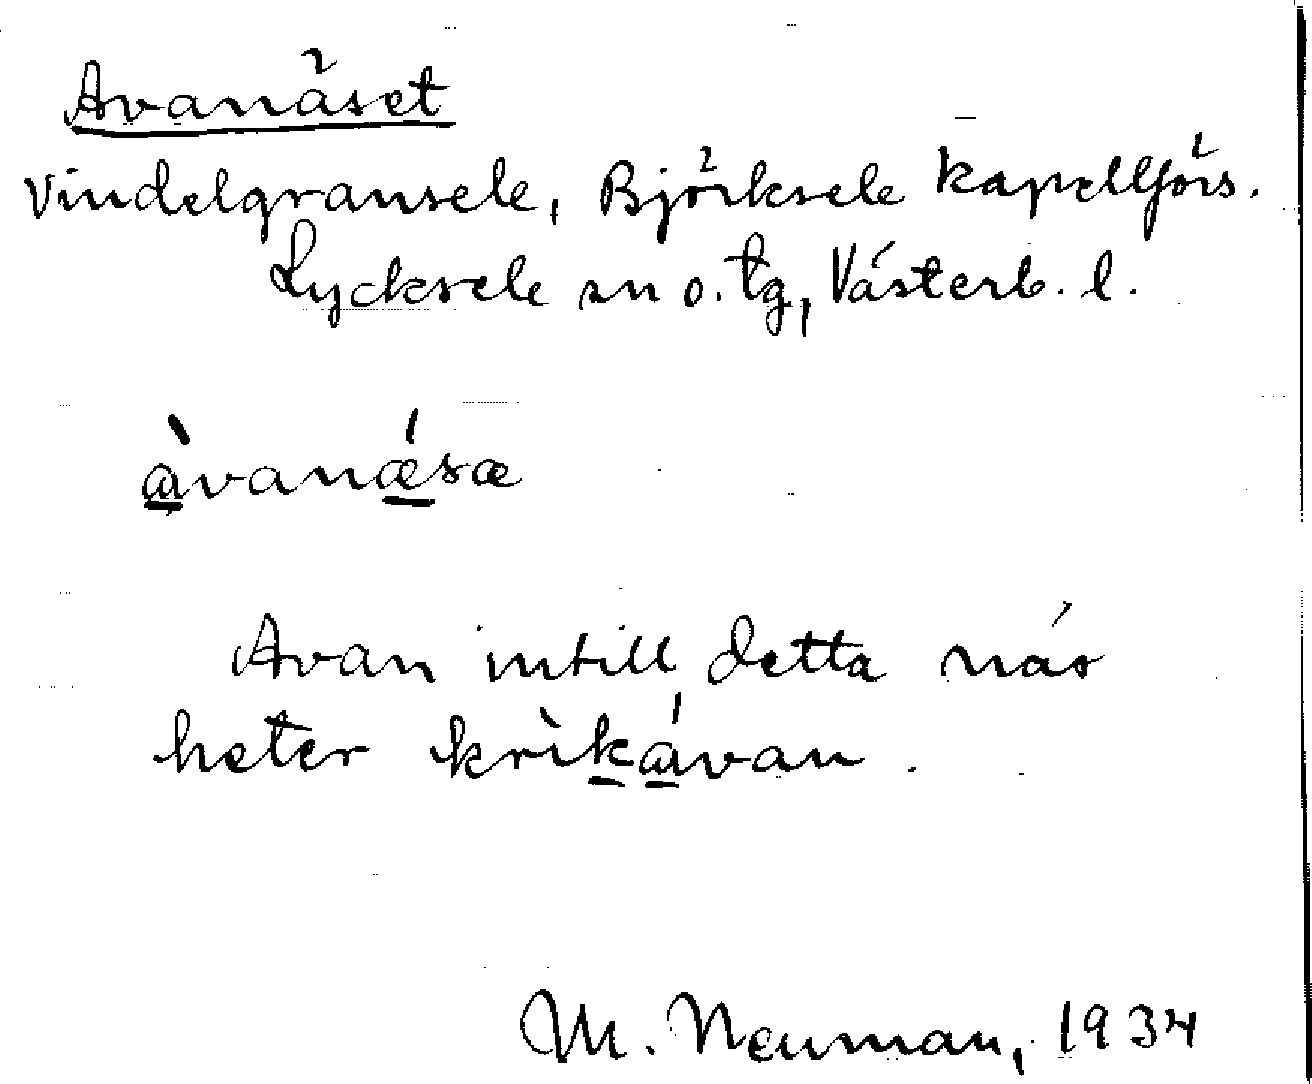 Avanäset
Vindelgransele, Björksele kapellförs.
Lycksele sn o. tg, Västerb. l.
àvanǽsæ
Avan intill detta näs
heter krìkávan.
M. Neuman, 1934